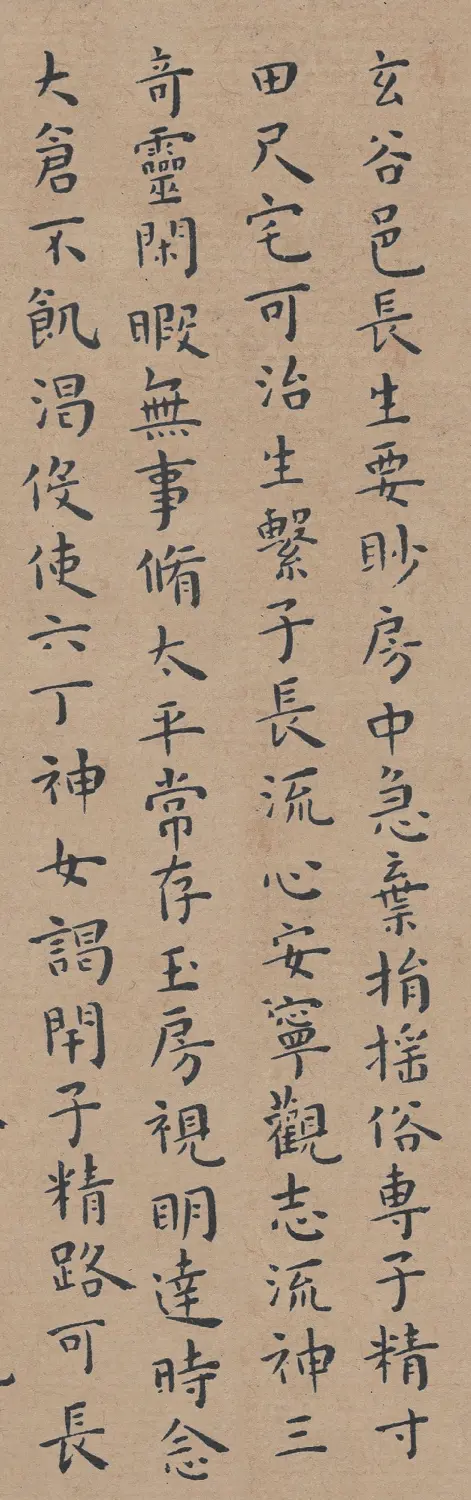 玄谷邑長生要眇房中急棄捐揺俗専子精寸
田尺宅可治生繫子長流心安寧觀志流神三
奇靈閑暇無事脩太平常存玉房視明達時念
大倉不飢渴役使六丁神女謁閇子精路可長